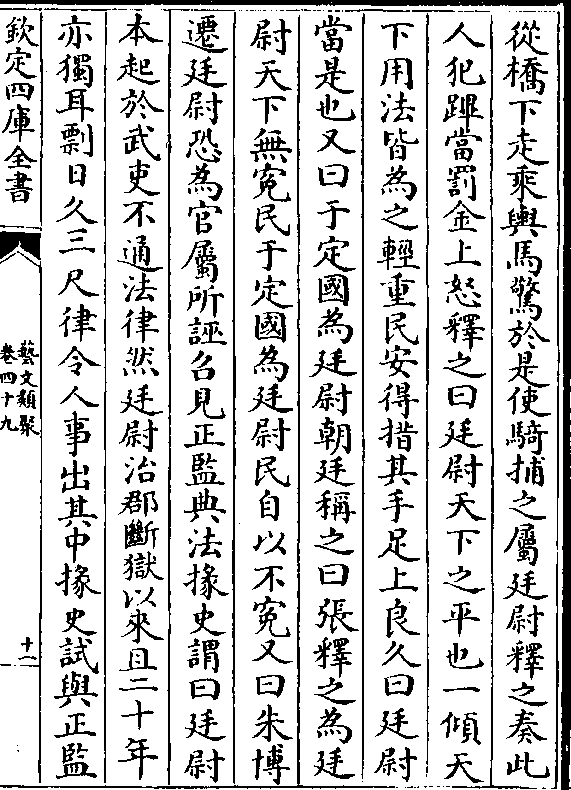 從橋下走乘輿馬驚於是使騎捕之屬廷尉釋之奏此
人犯蹕當罰金上怒釋之曰廷尉天下之平也一傾天
下用法皆為之輕重民安得措其手足上良久曰廷尉
當是也又曰于定國為廷尉朝廷稱之曰張釋之為廷
尉天下無寃民于定國為廷尉民自以不寃又曰朱博
遷廷尉恐為官屬所誣召見正監典法掾史謂曰廷尉
本起於武吏不通法律然廷尉治郡斷獄以來且二十年
亦獨耳剽日久三尺律令人事出其中掾史試與正監
欽定四庫全書
藝文類聚
卷四十九
十一